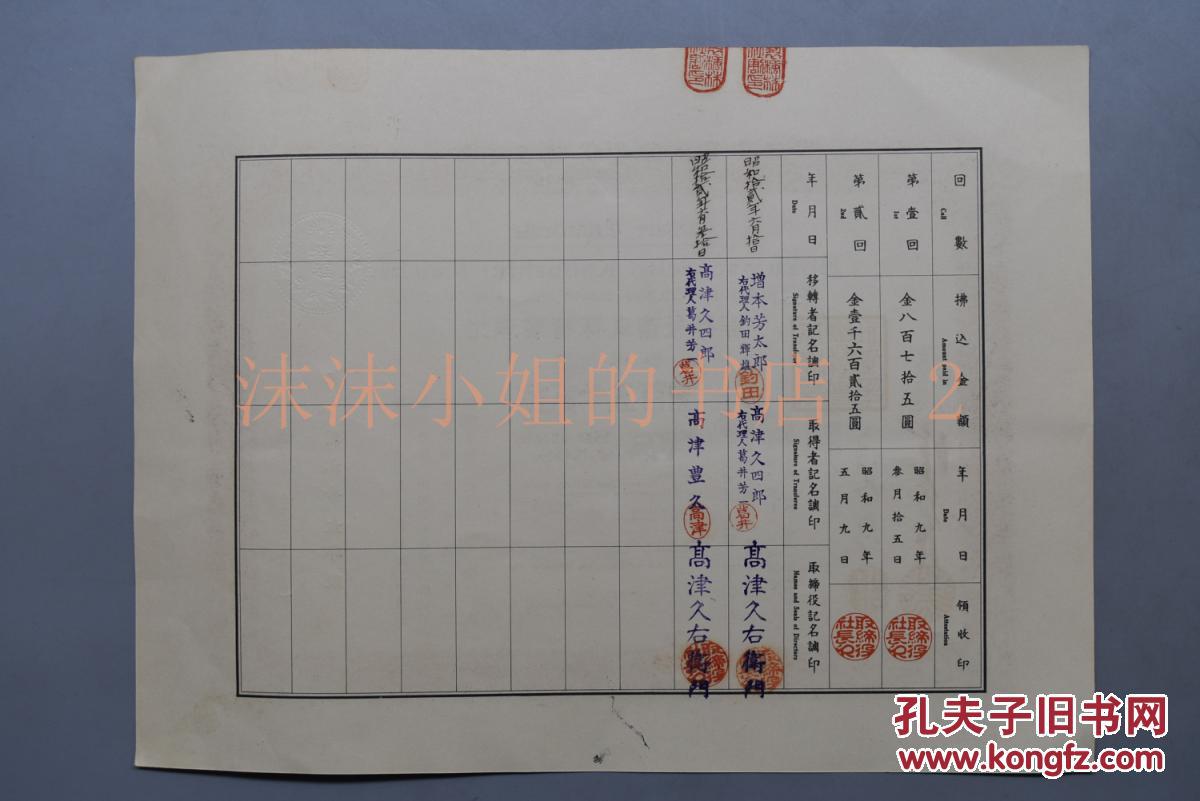 回數
Call
拂込金額
Amount paid in
年月日
Date
領收印
Attestation
第壹回
1st
金八百七拾五圓
昭和九年
參月拾五日
取締役
社長之
第貳回
2nd
金壹千六百貳拾五圓
昭和九年
五月九日
取締役
社長之
年月日
Date
移轉者記名調印
Signature of Transferor
取得者記名調印
Signature of Transferee
取締役記名調印
Names and Seals of Directors
昭和拾貳年六月拾日
增本芳太郎
右代理人釣田輝雄
釣田
高津久四郎
右代理人葛井芳一
葛井
高津久右衛門
昭和拾貳年六月參拾日
高津久四郎
右代理人葛井芳一
葛井
高津豊久
高津
高津久右衛門
沫沫小姐的书店 2
孔夫子旧书网
www.kongfz.com